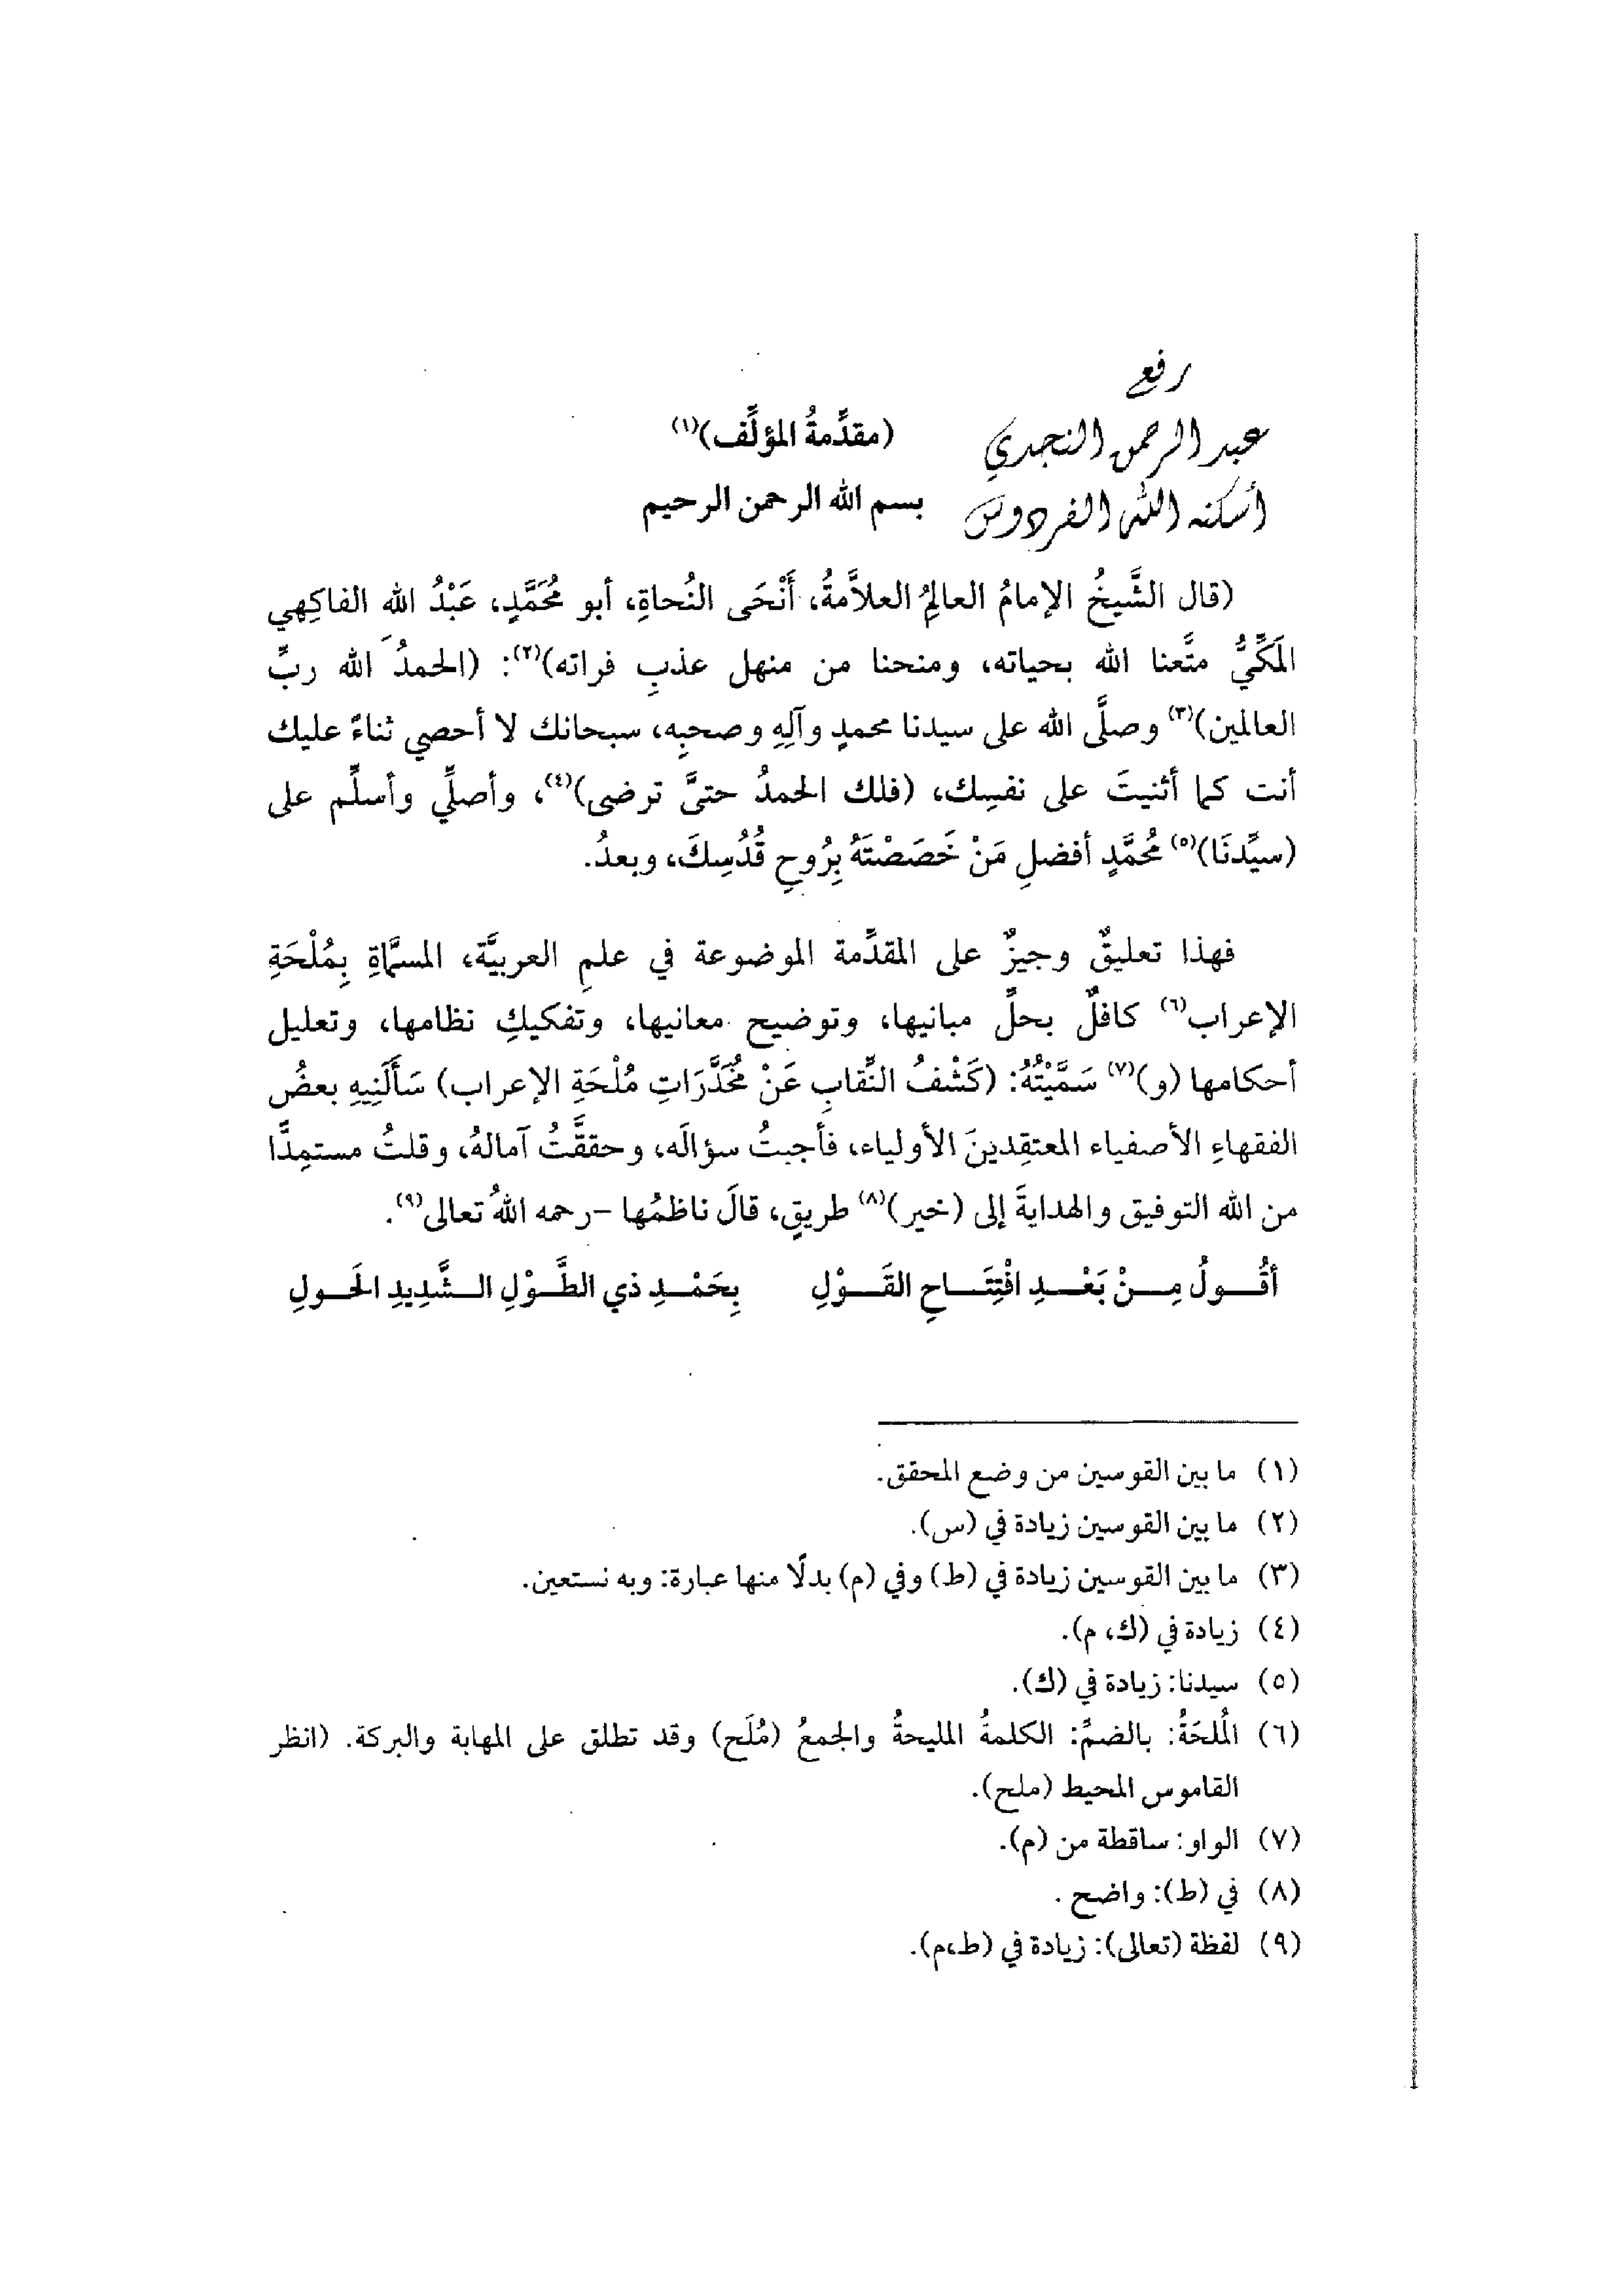 رفع
عبد الرحمن النجدي
أسكنه الله الفردوس
(مقدِّمةُ المؤلِّف)(١)
بسم الله الرحمن الرحيم
(قال الشَّيخُ الإمامُ العالِمُ العلاَّمةُ، أَنْحَى النُحاةِ، أبو مُحَمَّدٍ، عَبْدُ الله الفاكِهي
المَكِّيُّ متَّعنا الله بحياته، ومنحنا من منهل عذبِ فراته)(٢): (الحمدُ الله ربِّ
العالمين)(٣) وصلَّى الله على سيدنا محمدٍ وآلِهِ وصحبِه، سبحانك لا أحصي ثناءً عليك
أنت كما أثنيتَ على نفسِك، (فلك الحمدُ حتىَّ ترضى)(٤)، وأصلِّي وأسلِّم على
(سيِّدنَا)(٥) مُحمَّدٍ أفضلِ مَنْ خَصَصْتَهُ بِرُوحِ قُدُسِكَ، وبعدُ.
فهذا تعليقٌ وجيزٌ على المقدِّمة الموضوعة في علمِ العربيَّة، المسمَّاةِ بِمُلْحَةِ
الإعراب(٦) كافلٌ بحلِّ مبانيها، وتوضيح معانيها، وتفكيكِ نظامها، وتعليل
أحكامها (و)(٧) سَمَّيْتُهُ: (كَشْفُ النِّقابِ عَنْ مُخَدَّرَاتِ مُلْحَةِ الإعراب) سَأَلَنِيهِ بعضُ
الفقهاءِ الأصفياء المعتقِدينَ الأولياء، فأجبتُ سؤالَه، وحققَّتُ آمالهُ، وقلتُ مستمِدًّا
من الله التوفيق والهدايةَ إلى (خير)(٨) طريقٍ، قالَ ناظمُها -رحمه اللهُ تعالى(٩).
أقُـــولُ مِـــنْ بَعْـــدِ افْتِتَـــاحِ القَـــوْلِ بِحَمْـــدِ ذي الطَّـــوْلِ الـــشَّدِيدِ الحَـــولِ
(١) ما بين القوسين من وضع المحقق.
(٢) ما بين القوسين زيادة في (س).
(٣) ما بين القوسين زيادة في (ط) وفي (م) بدلًا منها عبارة: وبه نستعين.
(٤) زيادة في (ك، م).
(٥) سيدنا: زيادة في (ك).
(٦) المُلحَةُ: بالضمِّ: الكلمةُ المليحةُ والجمعُ (مُلَح) وقد تطلق على المهابة والبركة. (انظر
القاموس المحيط (ملح).
(٧) الواو: ساقطة من (م).
(٨) في (ط): واضح .
(٩) لفظة (تعالى): زيادة في (ط،م).